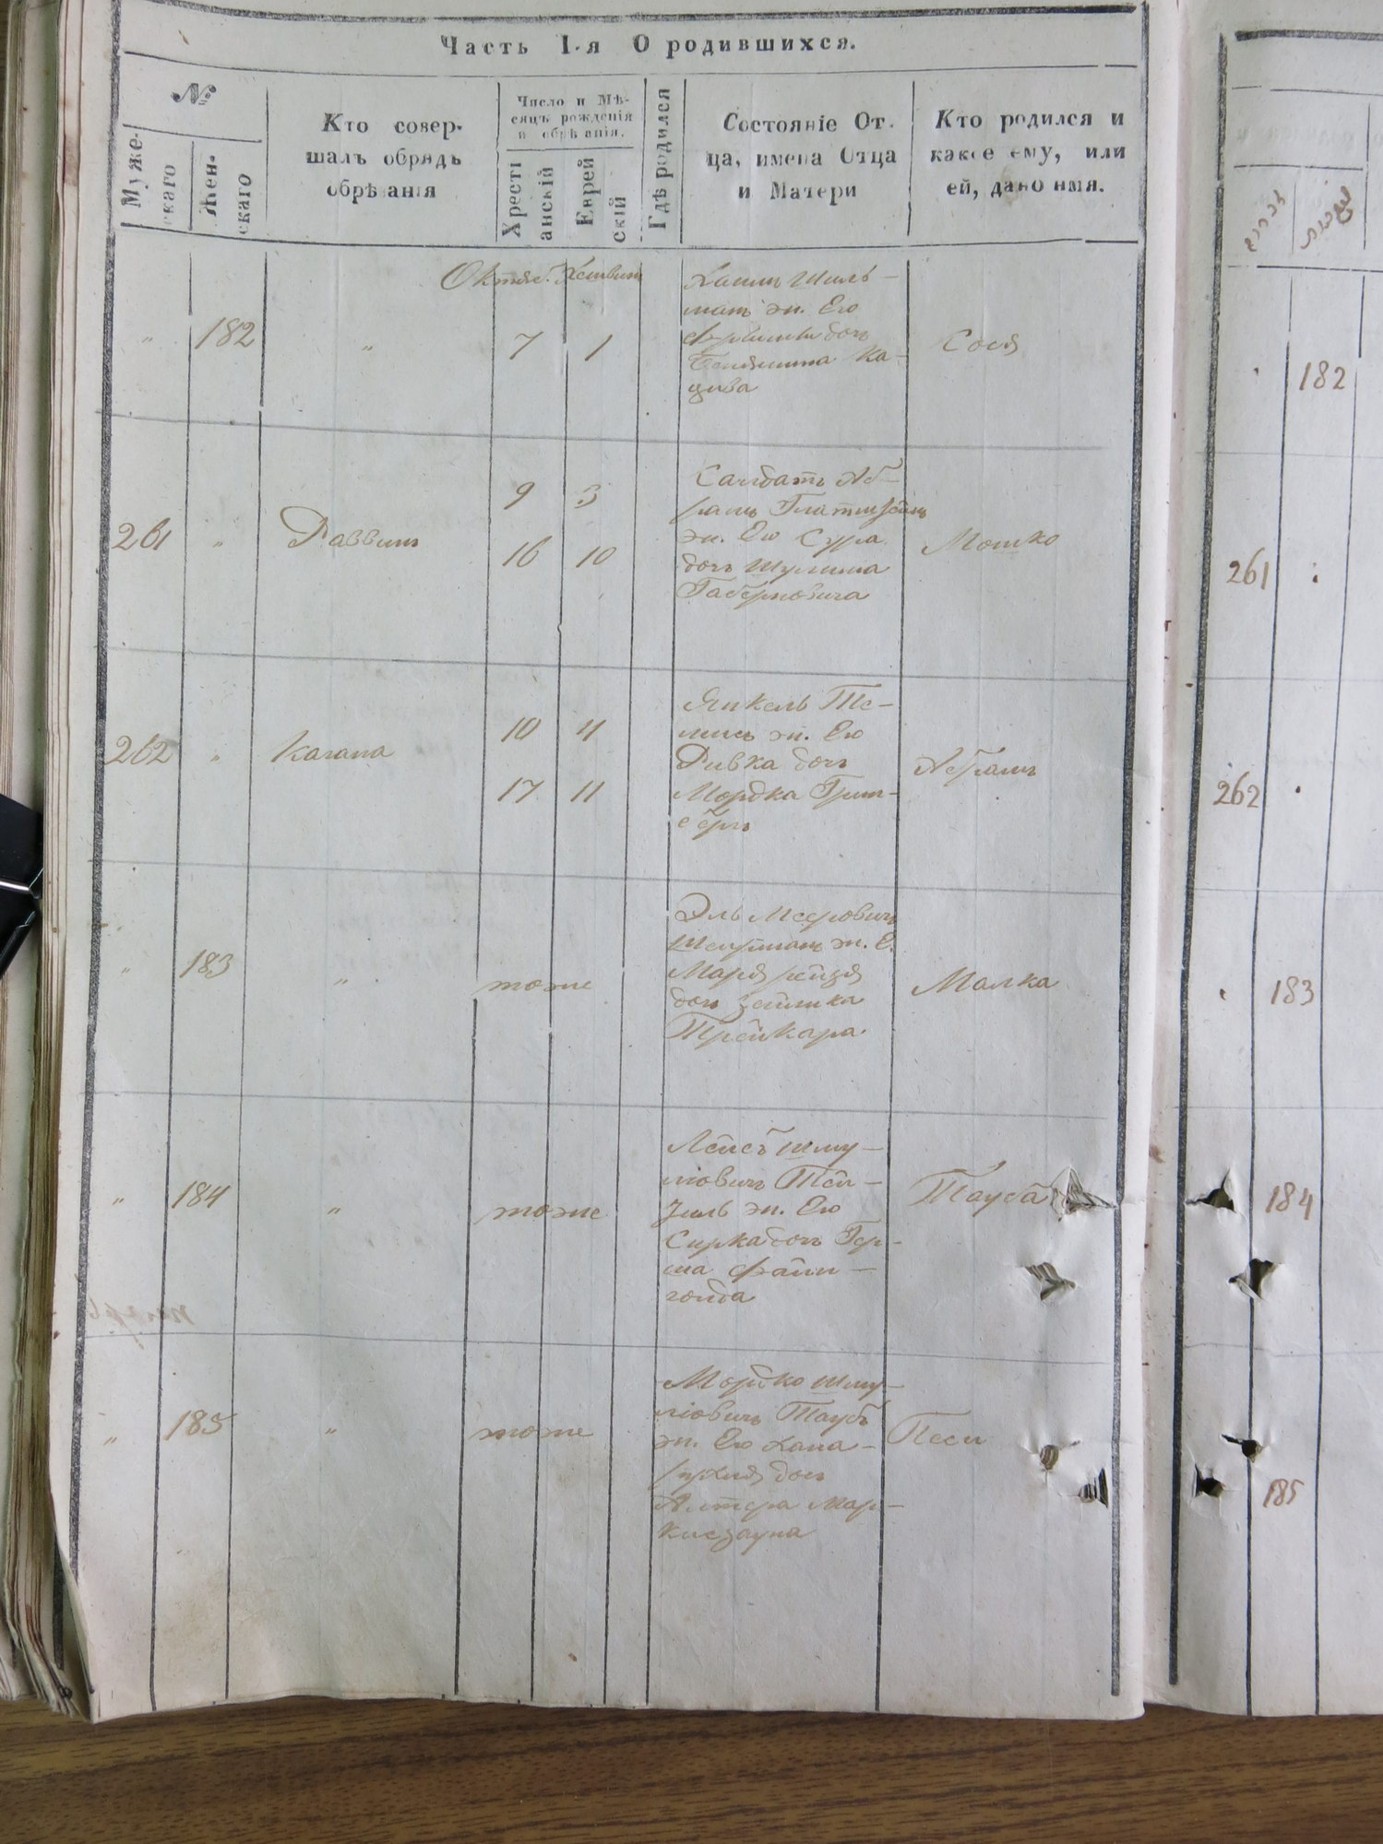 Часть I-я О родившихся.
№
Муже-
скаго
Жен-
скаго
Кто совер-
шалъ обрядъ
обрѣзанія
Число и Мѣ-
сяцъ рожденія
и обрѣзанія.
Христі
анскій
Еврей
скій
Гдѣ родился
Состояніе От-
ца, имена Отца
и Матери
Кто родился и
какое ему, или
ей, дано имя.
Октяб. Хешвин
" 182 " 7 1
Хаимъ Шиль-
манъ ж. Его
дочь
Ка-
цива
Сося
261 " Раввинъ
9 3
16 10
Салдатъ Аб-
рамъ
ж. Его Сура
дочь Шулима
Габерновича
Мошко
262 " Кагана
10 4
17 11
Янкель Те-
ж. Его
Ривка дочь
Мордка Грин-
берг
Абрамъ
" 183 " тоже
Эль Меерович
ж. Е.
Маря рейзя
дочь Зейлика
Трейкара
Малка
" 184 " тоже
Лейбъ Шму-
ліовичъ Тей-
ж. Его
Сурка дочь Гер-
ша Файн-
гольда
Тауба
" 185 " тоже
Мордко Шму-
ліовичъ Таубъ
ж. Его Хана-
рухля дочь
Алтера Мар-
Песи
182
261
262
183
184
185